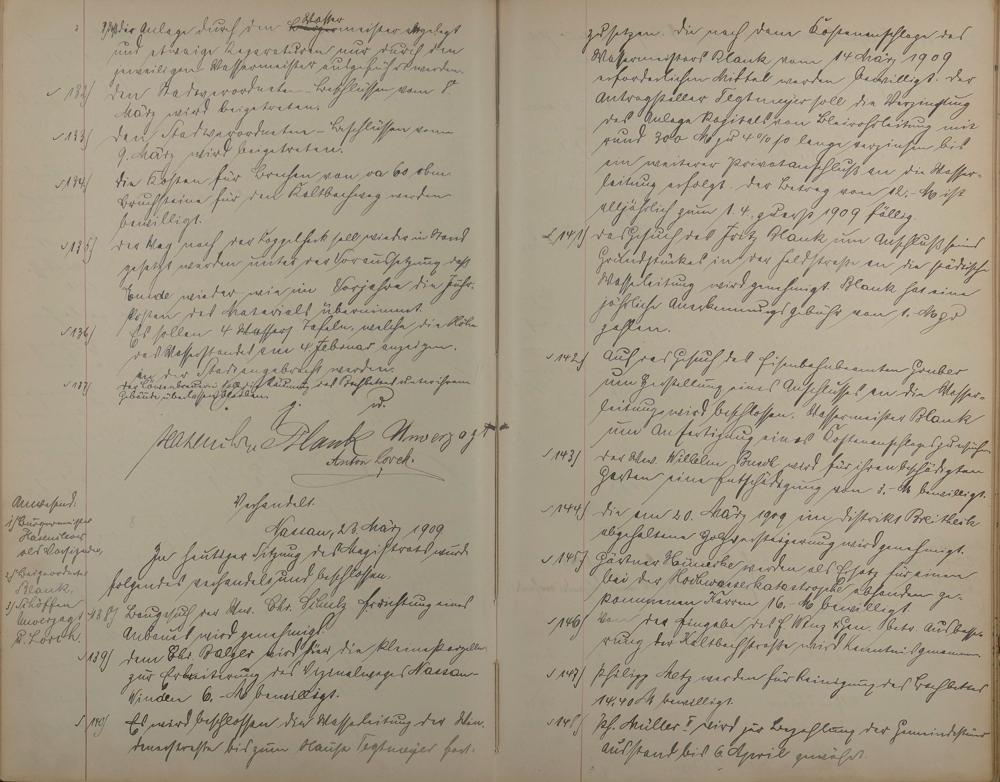 die Anlage durch den Wasser meister abgelegt
und etwaige Reparaturen nur durch den
jeweiligen Wassermeister ausgeführt werden.
132) Den Stadtverordneten-Beschlüssen vom 8.
März wird beigetreten.
133) Den Stadtverordneten-Beschlüssen vom
9. März wird beigetreten.
134) Die Kosten für Brechen von ca 60 cbm
Bruchsteine für den Kaltbachweg werden
bewilligt.
135) Der Weg nach der soll wieder in Stand
gesetzt werden unter der Voraussetzung daß
wieder, wie im Vorjahre die Fuhr-
kosten des Materials übernimmt.
136) Es sollen 4 Wasser Tafeln, welche die Höhe
des Wasserstandes am 4 Februar anzeigen,
in der Stadt angebracht werden.
137) Der Löwenbrauerei soll die Räumung des Bachbettes unter ihrem
Gebäude überlassen bleiben.
g. w.
Hasenclever Plank Unverzagt
Anton Lorch.
Verhandelt.
Nassau, 23 März 1909
Anwesend:
1) Bürgermeister
Hasenclever
als Vorsitzender,
2) Beigeordneter
Plank,
3) Schöffen
Unverzagt
u. Lorch.
In heutiger Sitzung des Magistrats wurde
folgendes verhandelt und beschlossen.
138) Baugesuch der Ww. Chr. Schulz Errichtung eines
Anbaues wird genehmigt.
139) Dem Chr. Balzer wird für die kleine Parzelle
zur Erbreiterung des Vizinalweges Nassau-
Winden 6.- M bewilligt.
140) Es wird beschlossen die Wasserleitung der Win-
denerstraße bis zum Hause Tegtmeyer fort-
zusetzen. Die nach dem Kostenanschlage des
Wassermeisters Blank vom 14 März 1909
erforderlichen Mittel werden bewilligt. Der
Antragsteller Tegtmeyer soll die Verzinsung
des Anlage Kapitals von Bleirohrleitung mit
rund 300 M zu 4% so lange verzinsen bis
ein weiterer Privatanschluß an die Wasser-
leitung erfolgt. Der Betrag von 12.- M ist
alljährlich zum 1.4. zuerst 1909 fällig.
141) Das Gesuch des Fritz Blank um Anschluß seines
Grundstückes in der Feldstraße an die städtische
Wasserleitung wird genehmigt. Blank hat eine
jährliche Anerkennungsgebühr von 1.- M zu
zahlen.
142) Auf das Gesuch des Eisenbahnbeamten Gruber
um Herstellung eines Anschlusses an die Wasser-
leitung wird beschlossen. Wassermeister Blank
um Anfertigung eines Kostenanschlags zu ersuchen.
143) Der Ww. Wilhelm wird für ihren beschädigten
Garten eine Entschädigung von 5.- M bewilligt.
144) Die am 20. März 1909 im Distrikt Breitheck
abgehaltene Holzversteigerung wird genehmigt.
145) Gärtner Heinecke werden als Ersatz für einen
bei der Hochwasserkatastrophe abhanden ge-
kommenen Karren 16.- M bewilligt
146) Von der Eingabe des Sen. betr. Ausbesse-
rung der Kaltbachstraße wird Kenntnis genommen.
147) Philipp Metz werden für Reinigung des Bachbettes
14.40 M bewilligt
148) Ph. Müller I wird zur Bezahlung der Gemeindesteuer
Ausstand bis 6 April gewährt.